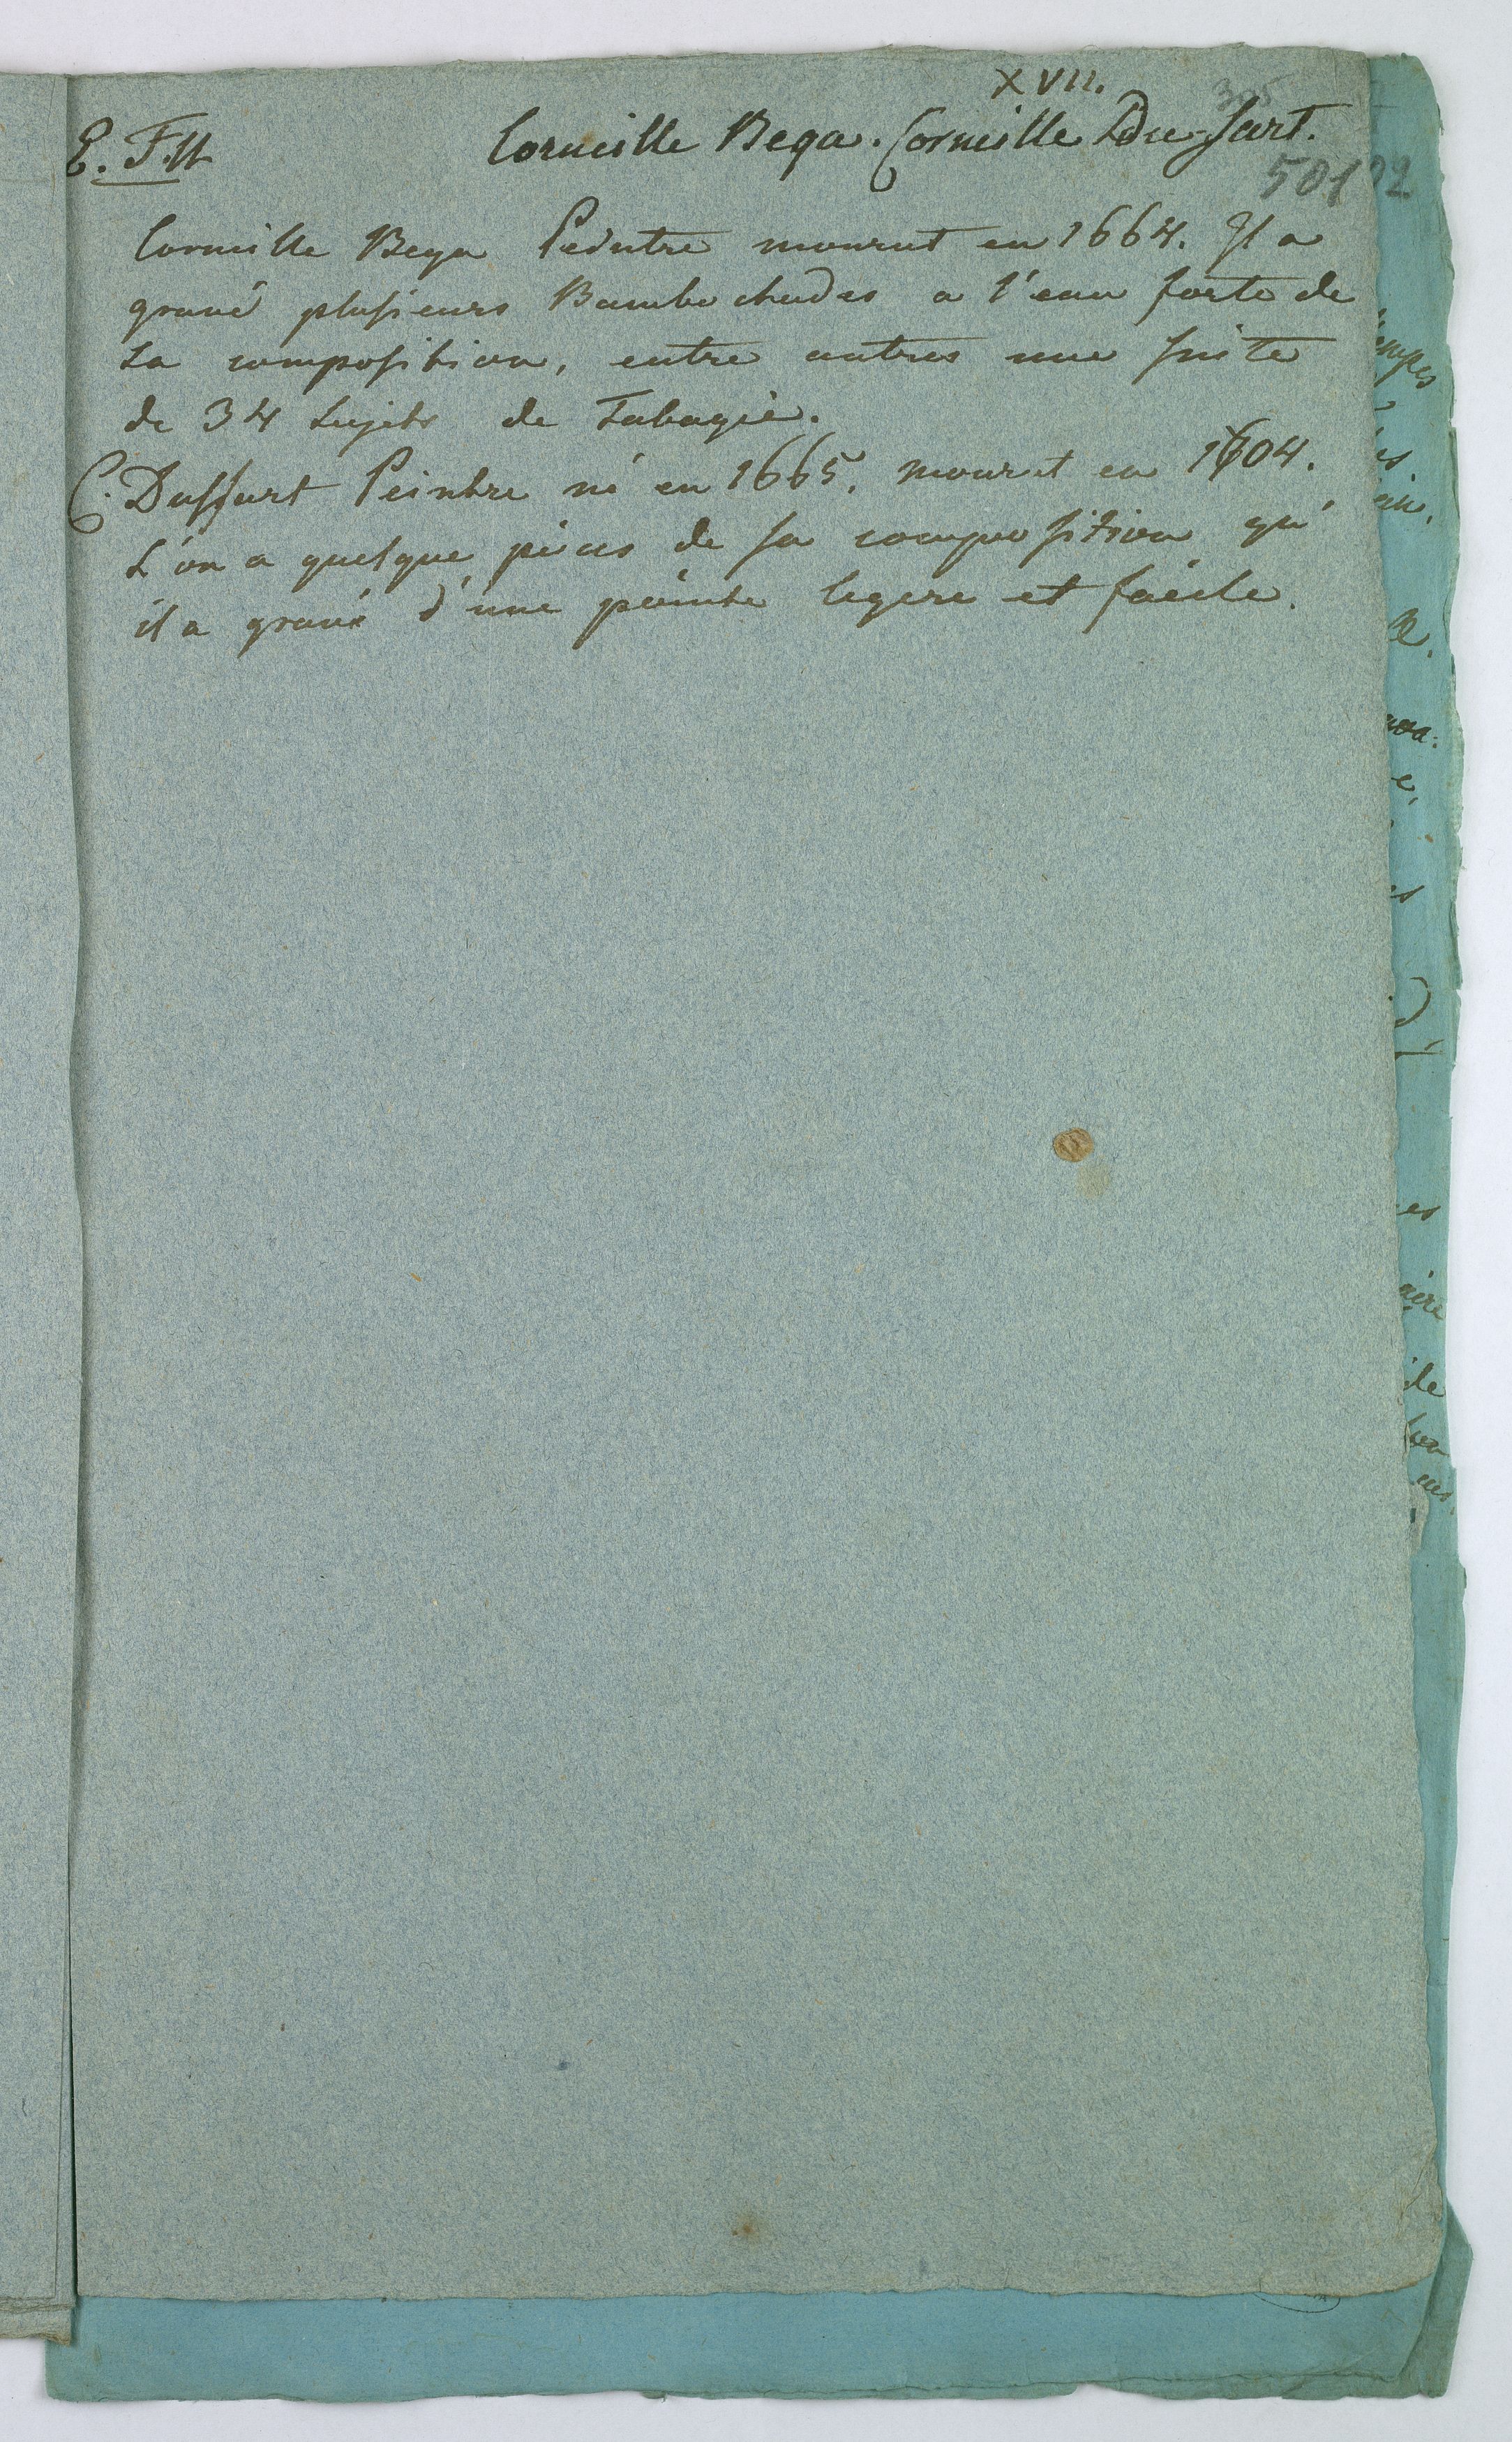 XVII.
305
E. F. H
Corneille Bega. Corneille Du-Sart.
501
02
Corneille Bega Peintre mourut en 1664. Il a
gravé plusieurs Bambochades a l'eau forte de
sa composition, entre autres une suite
de 34 sujets de Tabagie.
C. Dussart Peintre né en 1665. mourut en 1704.
L'on a quelque pièces de sa composition qu'
il a gravé d'une pointe legere et facile.